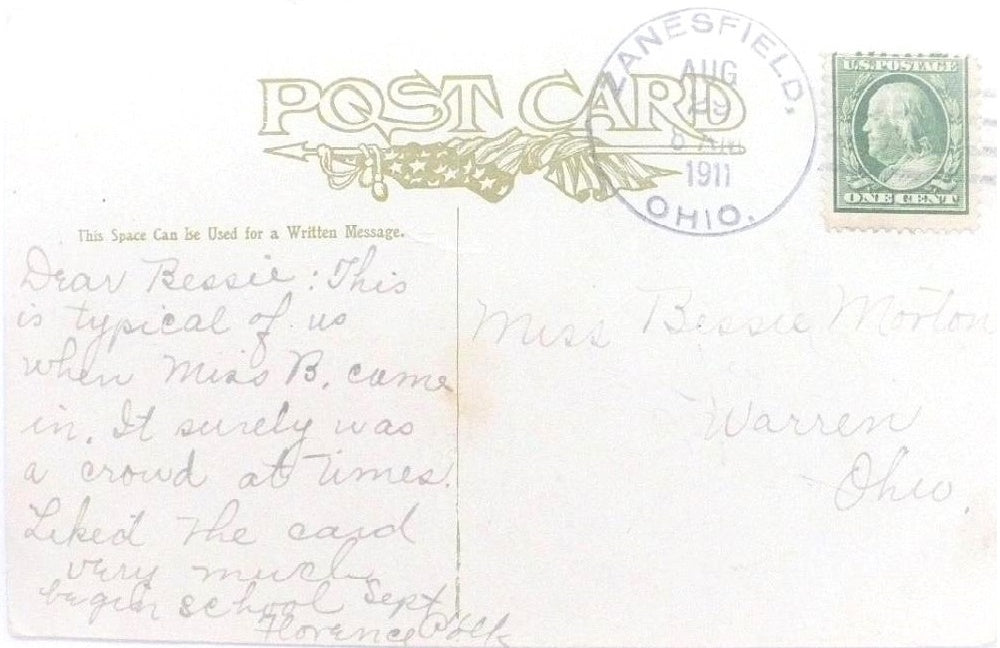 POST CARD
ZANESFIELD,
AUG
1911
OHIO.
U.S. POSTAGE
ONE CENT
This Space Can be Used for a Written Message.
Dear Bessie: This
is typical of us
when Miss B. came
in. It surely was
a crowd at times.
Liked the card
very much
begin school Sept
Florence
Miss Bessie Morton
Warren
Ohio.